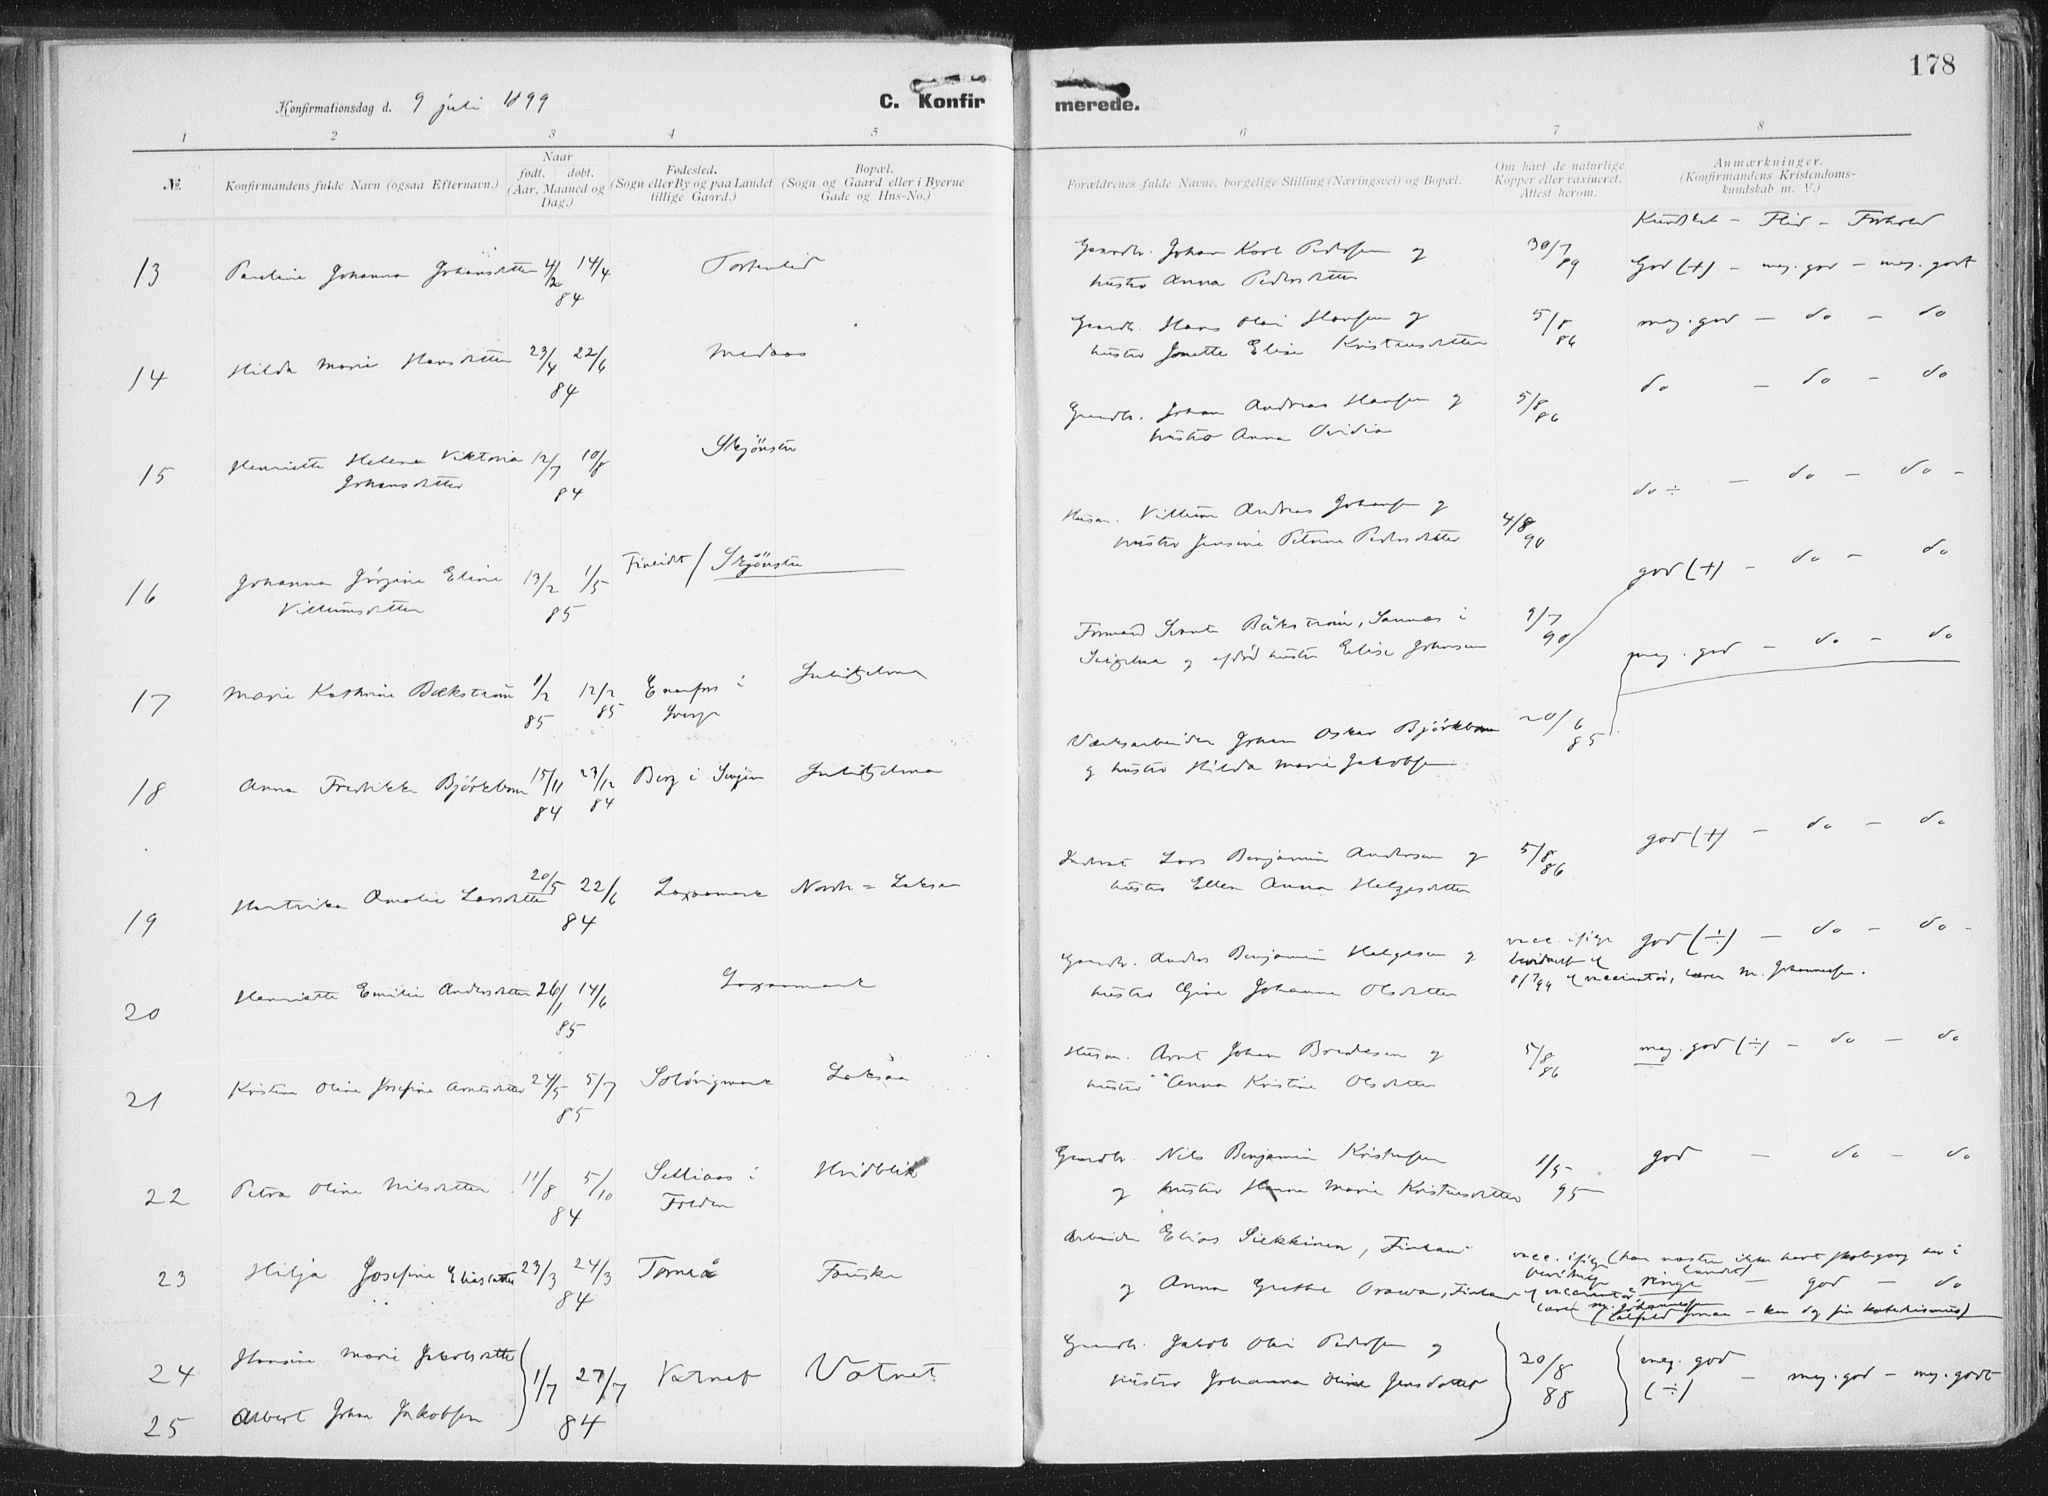 178
Konfirmationsdag d. 9 juli 1899
C. Konfir merede.
1 2 3 4 5 6 7 8
№ Konfirmandens fulde Navn (ogsaa Efternavn.) Naar født. døbt. (Aar, Maaned og Dag.) Fødested. (Sogn eller By og paa Landet tillige Gaard.) Bopæl. (Sogn og Gaard eller i Byerne Gade og Hus-No.) Forældrenes fulde Navne, borgelige Stilling (Næringsvei) og Bopæl. Om havt de naturlige Kopper eller vaxineret. Attest herom. Anmærkninger. (Konfirmandens Kristendoms-kundskab m. V.)
Kundskab - Flid - Forhold
13 Pauline Johanna Johansdatter 4/2 14/4 84 Gaardb. Johan Karl Pedersen og 30/7 89 God (+) - meg. god - meg. godt
hustro Anna Pedersdatter
14 Hilda Marie Hansdatter 23/4 22/6 84 Medaas Gaardb. Hans Olai Hansen og 5/8 86 meg. god - do - do
hustro Jonette Elise Kristensdatter
15 Henriette Helene Viktoria 12/7 10/8 84 Skjönstu Gaardb. Johan Andreas Hansen og 5/8 86 do - do - do
Johansdatter hustro Anna Ovidia
16 Johanna Jörgine Eline 13/2 1/5 85 Fineidt / Skjönstu Husm. Villum Andreas Johansen og 4/8 90 do ÷ - do - do -
Villumsdatter hustro Jensine Petrine Pedersdatter
17 Marie Kathrine Bækström 1/2 85 12/2 85 i Sverge Sulitjelma Formand Bäkström, Sannes i 9/7 90 god (+) - do - do
og hustro Elise Johansen
18 Anna Fredrikke Björkbom 15/11 84 23/12 84 Berg i Senjen Sulitjelma Værksarbeider Johan Oskar Björkbom 20/6 85 meg. god - do - do
og hustro Hilda Marie Jakobsen
19 Hartvika Amalie Larsdatter 20/5 22/6 84 Laxaamark Nordr = Laksaa Lars Benjamin Andersen og 5/8 86 god (+) - do - do
hustro Ellen Anna Helgesdatter
20 Henriette Emilie Andersdatter 26/1 14/6 85 Laxaamark Gaardb. Anders Benjamin Helgesen og vacc. ifölge god (÷) - do - do -
hustro Gine Johanna Olsdatter 8/7 99 af vaccinatör, lærer M. Johannessen.
21 Kristine Oline Josefine Arntsdatter 24/5 5/7 85 Solövigmark Laksaa Husm. Arnt Johan Bredesen og 5/8 86 meg. god (÷) - do - do
hustro Anna Kristine Olsdatter
22 Petra Oline Nilsdatter 11/8 5/10 84 Setliaas i Hvidblik Gaardb. Nils Benjamin Kristensen 1/5 95 god - do - do
og hustro Hanna Marie Kristensdatter
23 Hilja Josefine Eliasdatter 23/3 24/3 84 Torneå Fauske Arbeider Elias Siekkinen, Finland vacc. ifölge (har næsten ikke havt skolegang her i landet)
og Anna Grethe Orawa, Finland ringe - god - do
lærer M. Johannessen
24 Hansine Marie Jakobsdatter 1/7 27/7 84 Vatnet Vatnet Gaardb. Jakob Olai Pedersen og 20/8 88 meg. god (÷) - meg. god - meg. godt
hustro Johanna Oline Jensdatter
25 Albert Johan Jakobsen